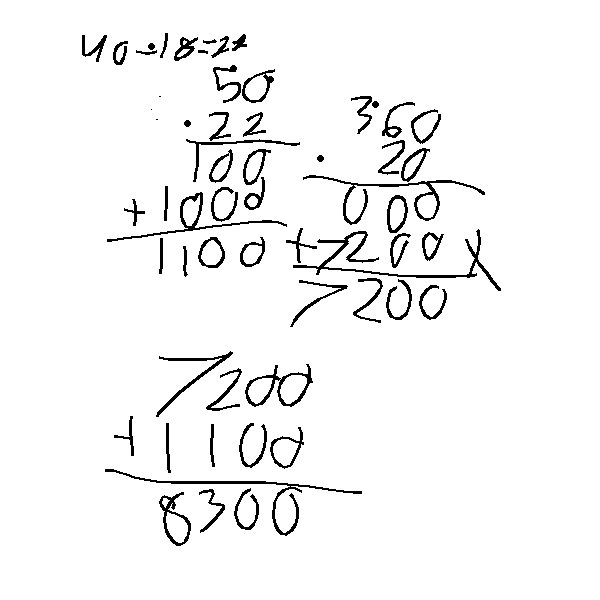 40-18=22
50
·22
100
+1000
1100
360
·20
000
+7200
7200
7200
+1100
8300